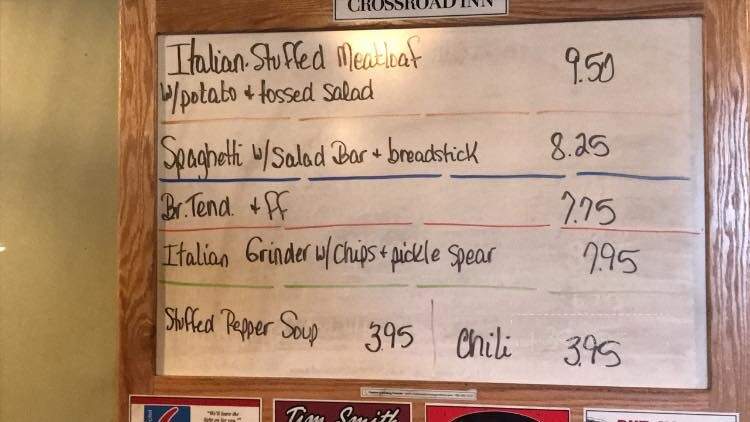 CROSSROAD INN
Italian Stuffed Meatloaf 9.50
w/potato + tossed salad
Spaghetti w/Salad Bar + breadstick 8.25
Br. Tend. + ff 7.75
Italian Grinder w/chips + pickle spear 7.95
Stuffed Pepper Soup 3.95 Chili 3.95
"We'll leave the
light on for you."
Tim Smith